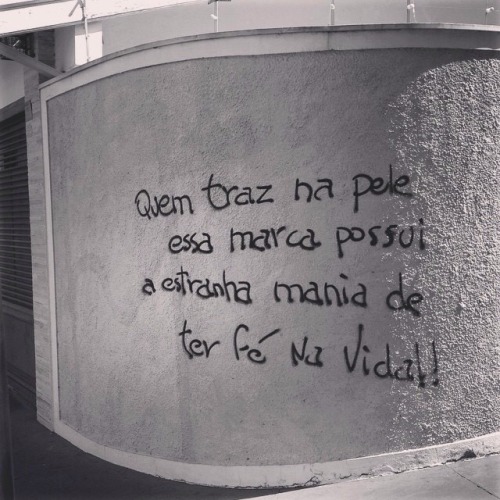 Quem traz na pele
essa marca possui
a estranha mania de
ter fé na vida!!